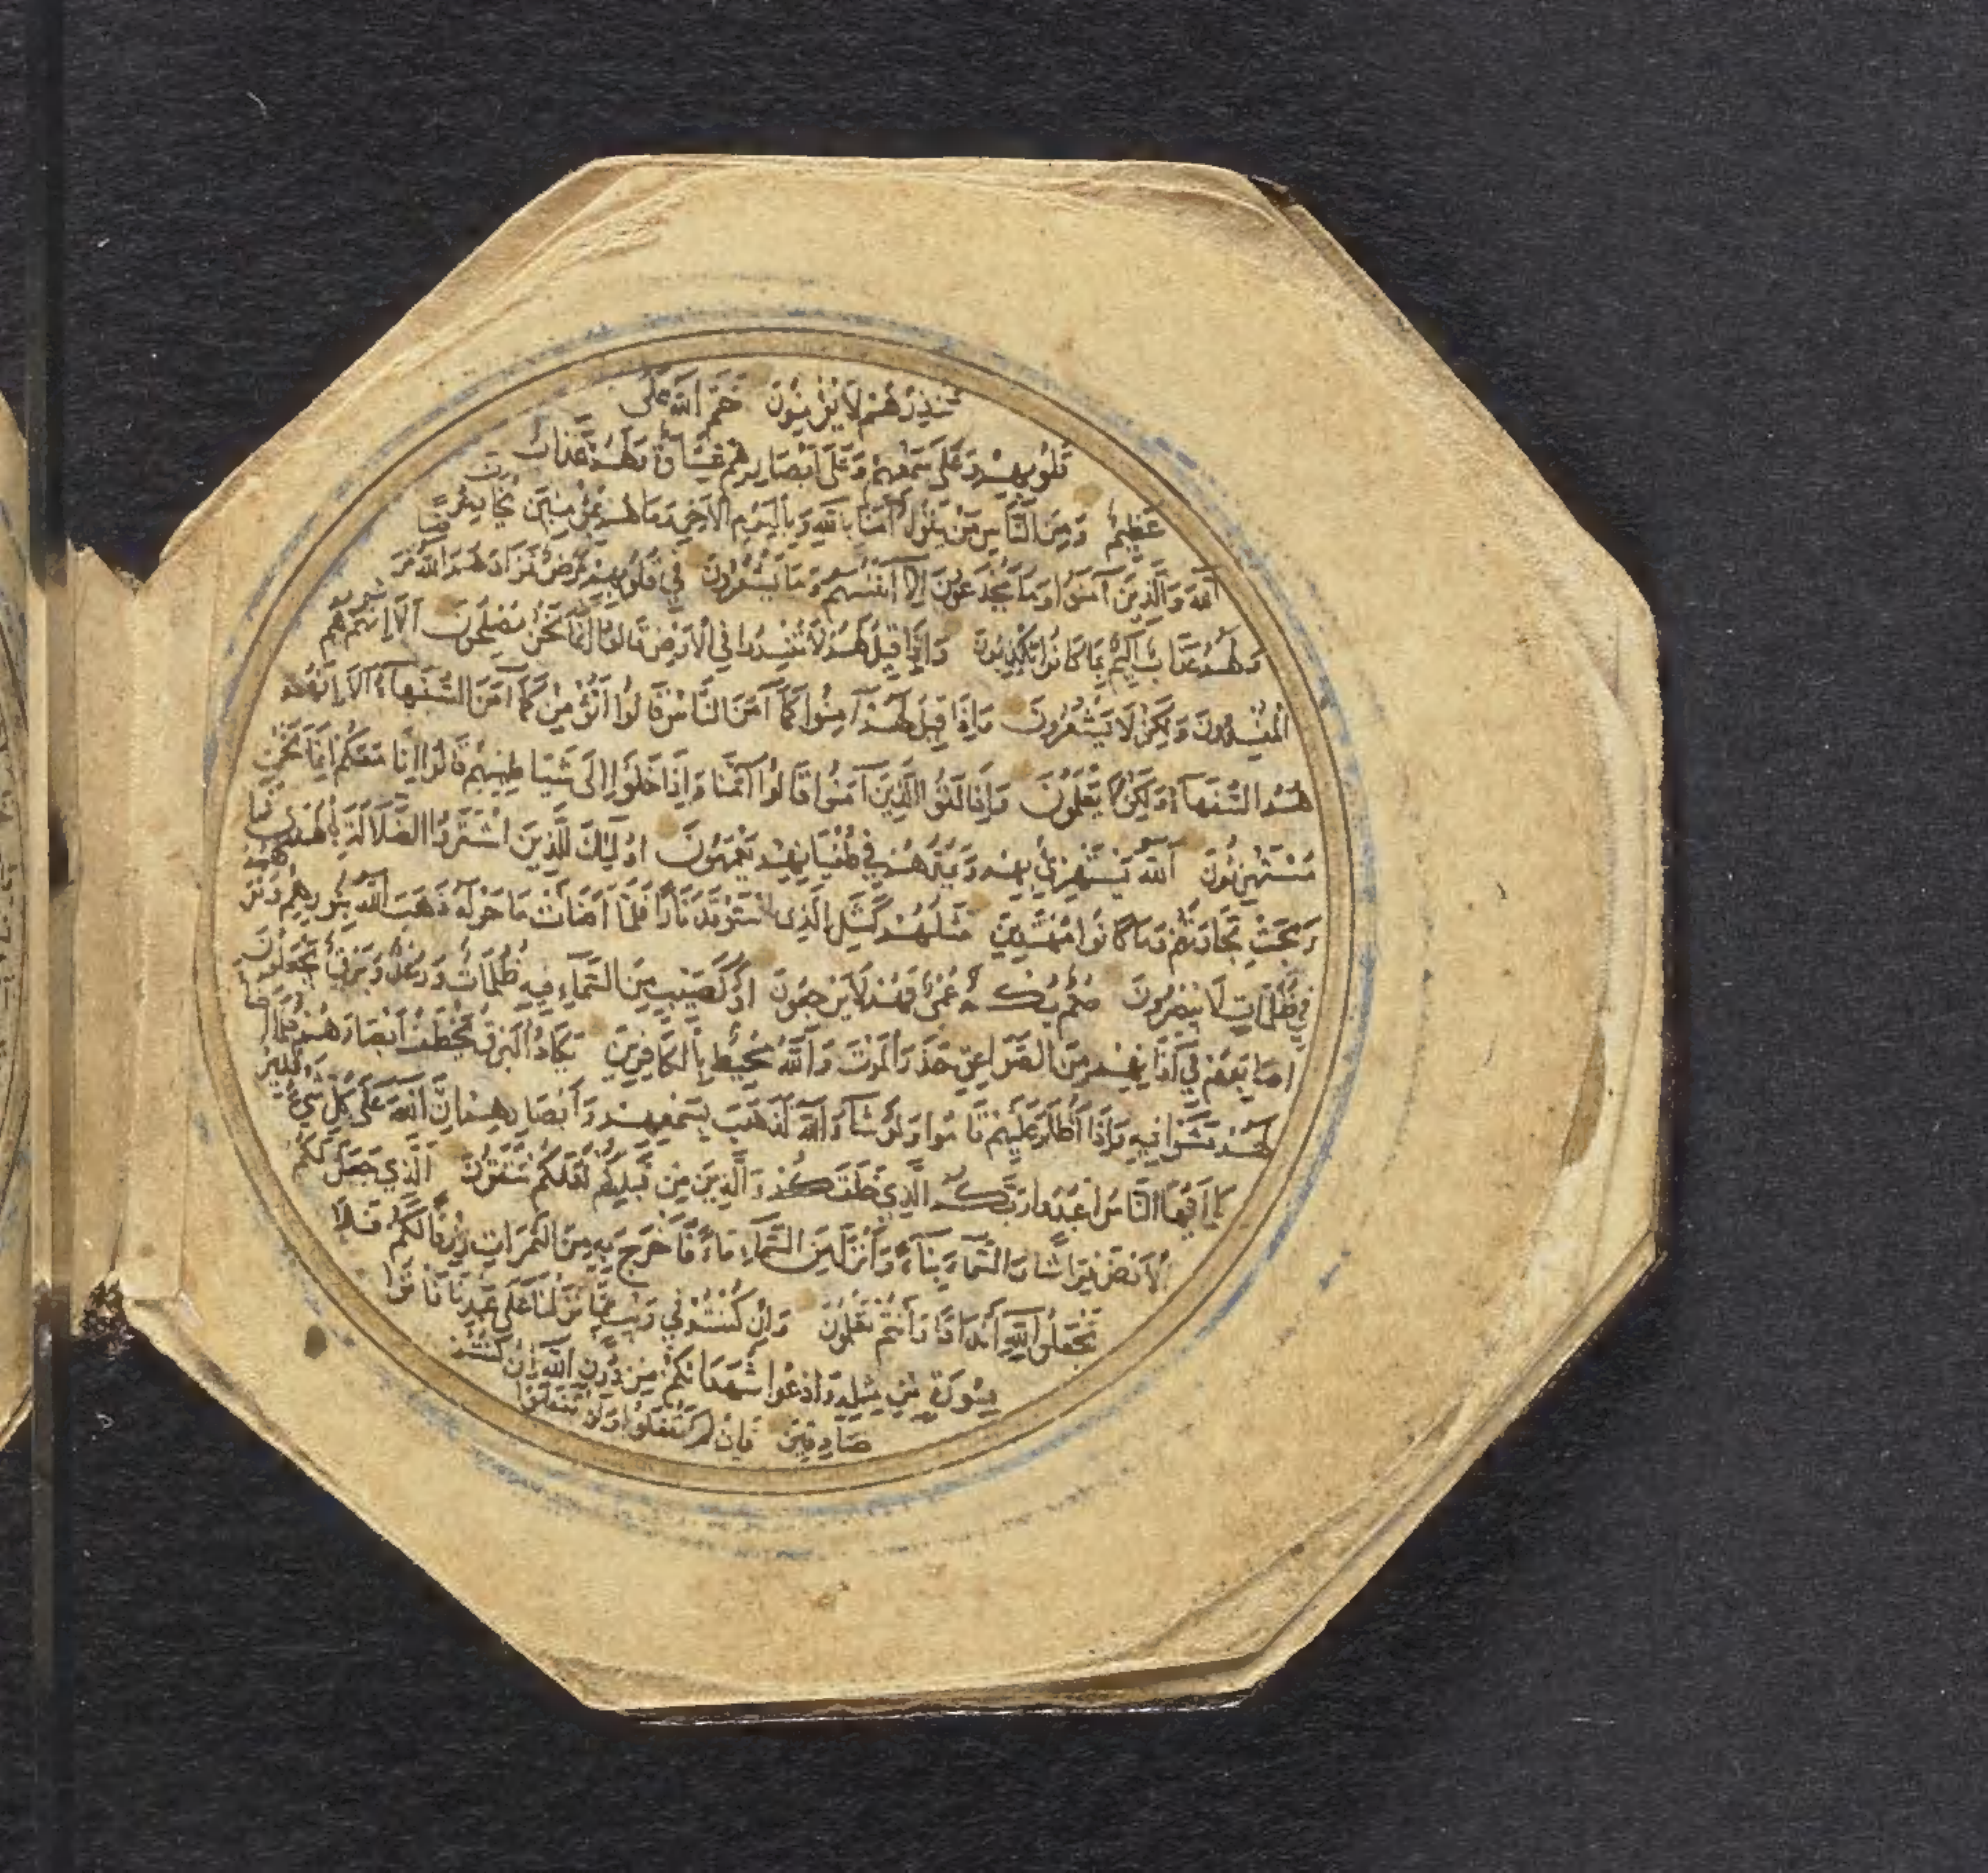 تُنْذِرْهُمْ لَا يُؤْمِنُونَ خَتَمَ اللَّهُ عَلَى
قُلُوبِهِمْ وَعَلَى سَمْعِهِمْ وَعَلَى أَبْصَارِهِمْ غِشَاوَةٌ وَلَهُمْ عَذَابٌ
عَظِيمٌ وَمِنَ النَّاسِ مَنْ يَقُولُ آمَنَّا بِاللَّهِ وَبِالْيَوْمِ الْآخِرِ وَمَا هُمْ بِمُؤْمِنِينَ يُخَادِعُونَ
اللَّهَ وَالَّذِينَ آمَنُوا وَمَا يَخْدَعُونَ إِلَّا أَنْفُسَهُمْ وَمَا يَشْعُرُونَ فِي قُلُوبِهِمْ مَرَضٌ فَزَادَهُمُ اللَّهُ مَرَضًا
وَلَهُمْ عَذَابٌ أَلِيمٌ بِمَا كَانُوا يَكْذِبُونَ وَإِذَا قِيلَ لَهُمْ لَا تُفْسِدُوا فِي الْأَرْضِ قَالُوا إِنَّمَا نَحْنُ مُصْلِحُونَ أَلَا إِنَّهُمْ هُمُ
الْمُفْسِدُونَ وَلَكِنْ لَا يَشْعُرُونَ وَإِذَا قِيلَ لَهُمْ آمِنُوا كَمَا آمَنَ النَّاسُ قَالُوا أَنُؤْمِنُ كَمَا آمَنَ السُّفَهَاءُ أَلَا إِنَّهُمْ
هُمُ السُّفَهَاءُ وَلَكِنْ لَا يَعْلَمُونَ وَإِذَا لَقُوا الَّذِينَ آمَنُوا قَالُوا آمَنَّا وَإِذَا خَلَوْا إِلَى شَيَاطِينِهِمْ قَالُوا إِنَّا مَعَكُمْ إِنَّمَا نَحْنُ
مُسْتَهْزِئُونَ اللَّهُ يَسْتَهْزِئُ بِهِمْ وَيَمُدُّهُمْ فِي طُغْيَانِهِمْ يَعْمَهُونَ أُولَئِكَ الَّذِينَ اشْتَرَوُا الضَّلَالَةَ بِالْهُدَى فَمَا
رَبِحَتْ تِجَارَتُهُمْ وَمَا كَانُوا مُهْتَدِينَ مَثَلُهُمْ كَمَثَلِ الَّذِي اسْتَوْقَدَ نَارًا فَلَمَّا أَضَاءَتْ مَا حَوْلَهُ ذَهَبَ اللَّهُ بِنُورِهِمْ وَتَرَكَهُمْ
فِي ظُلُمَاتٍ لَا يُبْصِرُونَ صُمٌّ بُكْمٌ عُمْيٌ فَهُمْ لَا يَرْجِعُونَ أَوْ كَصَيِّبٍ مِنَ السَّمَاءِ فِيهِ ظُلُمَاتٌ وَرَعْدٌ وَبَرْقٌ يَجْعَلُونَ
أَصَابِعَهُمْ فِي آذَانِهِمْ مِنَ الصَّوَاعِقِ حَذَرَ الْمَوْتِ وَاللَّهُ مُحِيطٌ بِالْكَافِرِينَ يَكَادُ الْبَرْقُ يَخْطَفُ أَبْصَارَهُمْ كُلَّمَا أَضَاءَ
لَهُمْ مَشَوْا فِيهِ وَإِذَا أَظْلَمَ عَلَيْهِمْ قَامُوا وَلَوْ شَاءَ اللَّهُ لَذَهَبَ بِسَمْعِهِمْ وَأَبْصَارِهِمْ إِنَّ اللَّهَ عَلَى كُلِّ شَيْءٍ قَدِيرٌ
يَا أَيُّهَا النَّاسُ اعْبُدُوا رَبَّكُمُ الَّذِي خَلَقَكُمْ وَالَّذِينَ مِنْ قَبْلِكُمْ لَعَلَّكُمْ تَتَّقُونَ الَّذِي جَعَلَ لَكُمُ
الْأَرْضَ فِرَاشًا وَالسَّمَاءَ بِنَاءً وَأَنْزَلَ مِنَ السَّمَاءِ مَاءً فَأَخْرَجَ بِهِ مِنَ الثَّمَرَاتِ رِزْقًا لَكُمْ فَلَا
تَجْعَلُوا لِلَّهِ أَنْدَادًا وَأَنْتُمْ تَعْلَمُونَ وَإِنْ كُنْتُمْ فِي رَيْبٍ مِمَّا نَزَّلْنَا عَلَى عَبْدِنَا فَأْتُوا
بِسُورَةٍ مِنْ مِثْلِهِ وَادْعُوا شُهَدَاءَكُمْ مِنْ دُونِ اللَّهِ إِنْ كُنْتُمْ
صَادِقِينَ فَإِنْ لَمْ تَفْعَلُوا وَلَنْ تَفْعَلُوا